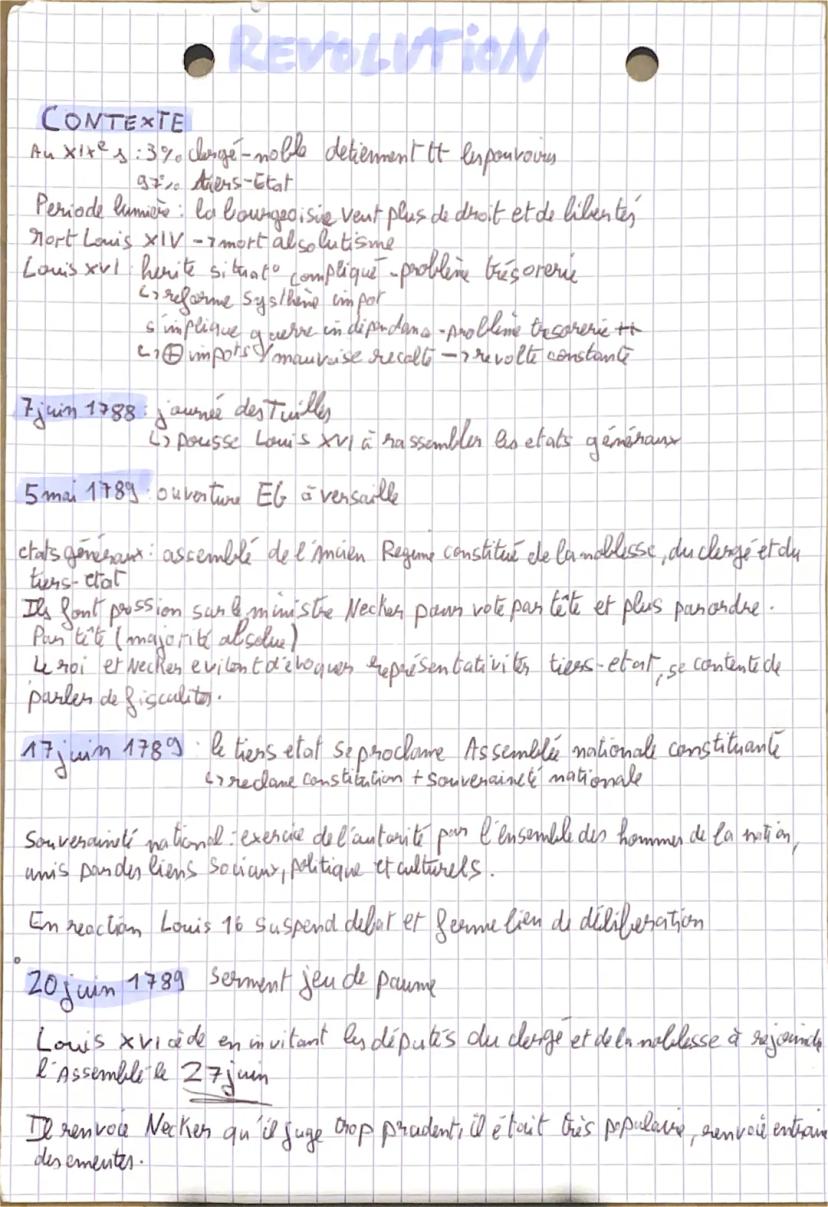 REVOLUTION
CONTEXTE
Au XIXe s : 3% clergé-noble detiennent tt les pouvoirs
97% tiers-Etat
Periode lumière : la bourgeoisie veut plus de droit et de libertés
Mort Louis XIV -> mort absolutisme
Louis XVI herite situat° compliqué - problème trésorerie
↳ reforme systhème impot
s'implique guerre indipendance - problème tresorerie ++
↳ ⊕ impots / mauvaise recolte -> revolte constante
7 juin 1788 : journée des Tuilles
↳ pousse Louis XVI à rassembler les etats généraux
5 mai 1789 : ouverture EG à versaille
etats généraux : assemblé de l'Ancien Regime constitué de la noblesse, du clergé et du
tiers-etat
Ils font pression sur le ministre Necker pour vote par tête et plus par ordre.
Par tête (majorité absolue)
Le roi et Necker evitent d'évoquer représentativités tiers-etat, se contente de
parler de fiscalités.
17 juin 1789 : le tiers etat se proclame Assemblée nationale constituante
↳ reclame constitution + souveraineté nationale
Souveraineté national : exercice de l'autorité par l'ensemble des hommes de la nation,
unis par des liens sociaux, politique et culturels.
En reaction Louis 16 suspend debat et ferme lieu de délibération
20 juin 1789 serment jeu de paume
Louis XVI cède en invitant les députés du clergé et de la noblesse à rejoindre
l'Assemblé le 27 juin
Il renvoie Necker qu'il juge trop prudent, il était très populaire, renvoie entraine
des emeutes.